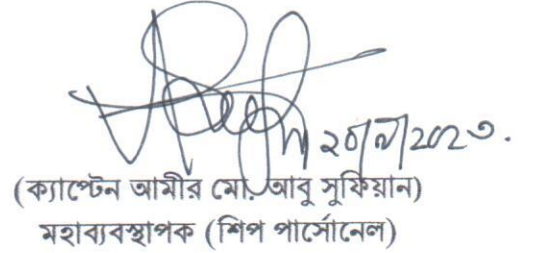 ২০/৯/২০২৩.
(ক্যাপ্টেন আমীর মোঃ আবু সুফিয়ান)
মহাব্যবস্থাপক (শিপ পার্সোনেল)